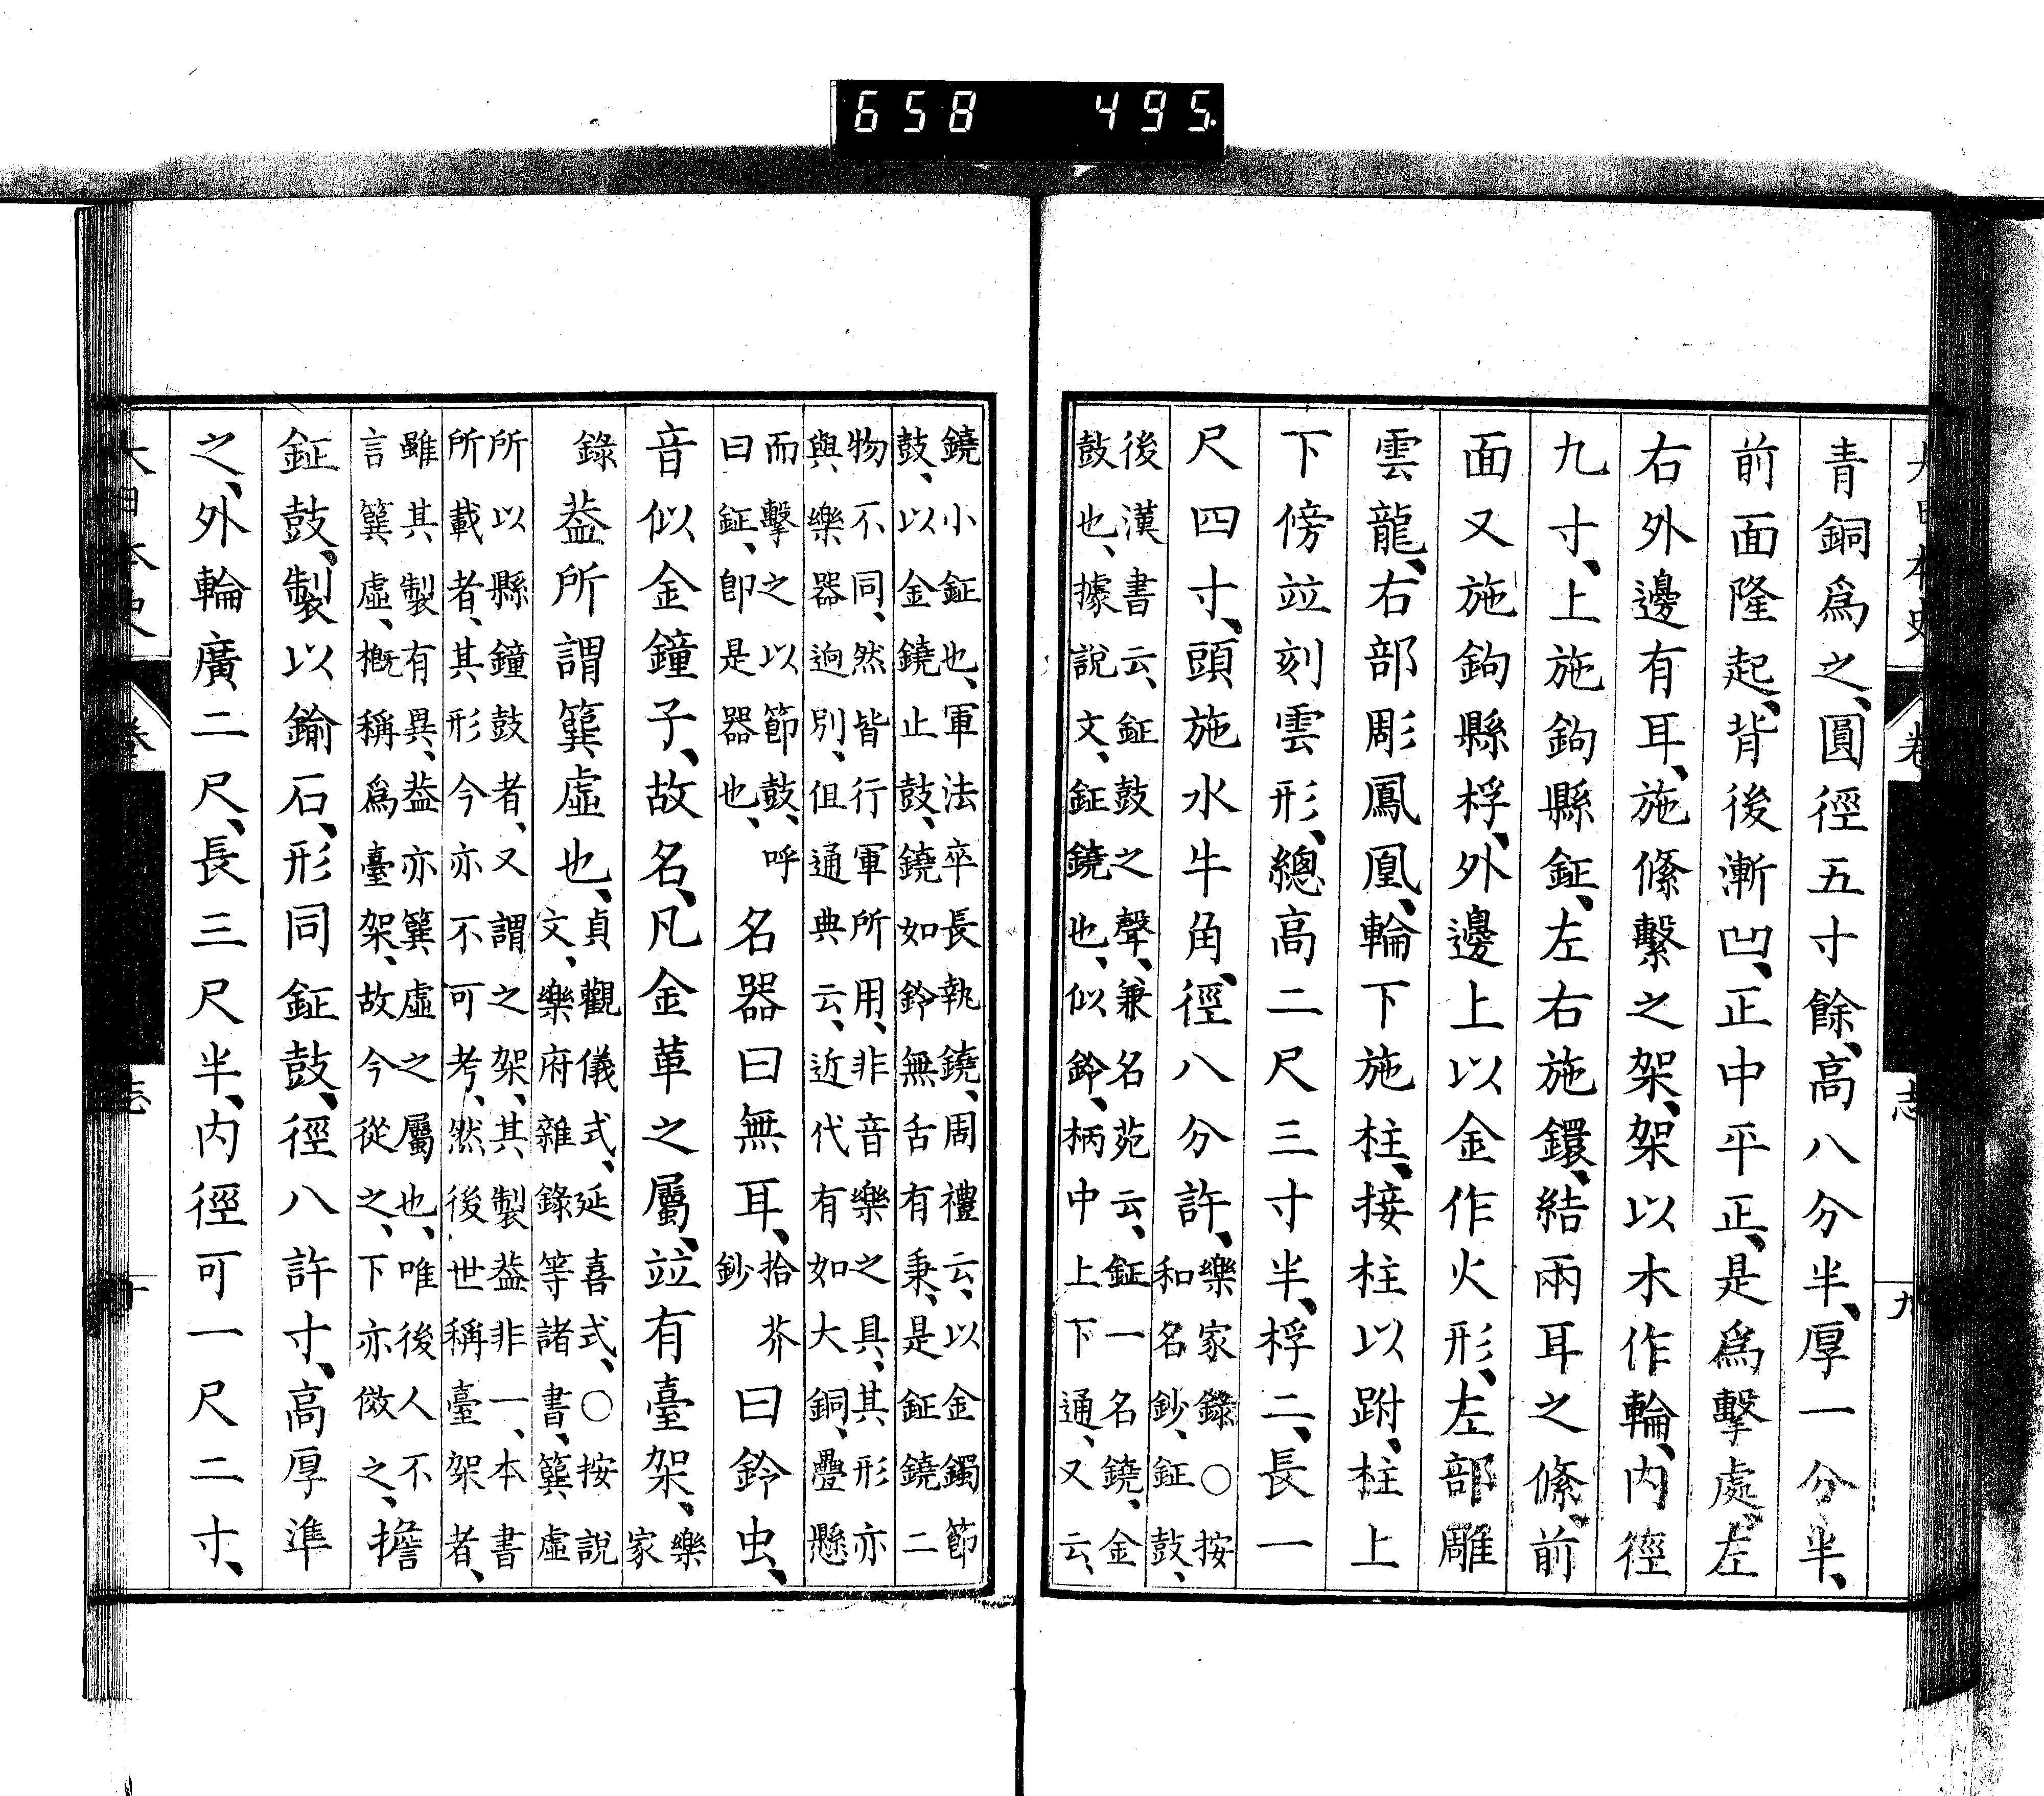 658 495
青銅爲之、圓徑五寸餘、高八分半、厚一分半、
前面隆起、背後漸凹、正中平正、是爲擊處、左
右外邊有耳、施絛繫之架、架以木作輪、內徑
九寸、上施鉤縣鉦、左右施鐶、結兩耳之絛、前
面又施鉤縣桴、外邊上以金作火形、左部雕
雲龍、右部彫鳳凰、輪下施柱、接柱以跗、柱上
下傍竝刻雲形、總高二尺三寸半、桴二、長一
尺四寸、頭施水牛角、徑八分許、樂家錄○按
和名鈔、鉦鼓、
後漢書云、鉦鼓之聲、兼名苑云、鉦一名鐃、金
鼓也、據說文、鉦鐃也、似鈴、柄中上下通、又云、
鐃小鉦也、軍法卒長執鐃、周禮云、以金鐲節
鼓、以金鐃止鼓、鐃如鈴無舌有秉、是鉦鐃二
物不同、然皆行軍所用、非音樂之具、其形亦
與樂器逈別、但通典云、近代有如大銅疊懸
而擊之以節鼓、呼
曰鉦、卽是器也、
名器曰無耳、拾芥
鈔
曰鈴虫、
音似金鐘子、故名、凡金革之屬、竝有臺架、樂
家
錄
葢所謂簨虛也、貞觀儀式、延喜式、○按說
文、樂府雜錄等諸書、簨虛
所以縣鐘鼓者、又謂之架、其製葢非一、本書
所載者、其形今亦不可考、然後世稱臺架者、
雖其製有異、葢亦簨虛之屬也、唯後人不
言簨虛、概稱爲臺架、故今從之、下亦傚之、
擔
鉦鼓、製以鍮石、形同鉦鼓、徑八許寸、高厚準
之、外輪廣二尺、長三尺半、內徑可一尺二寸、
志
九